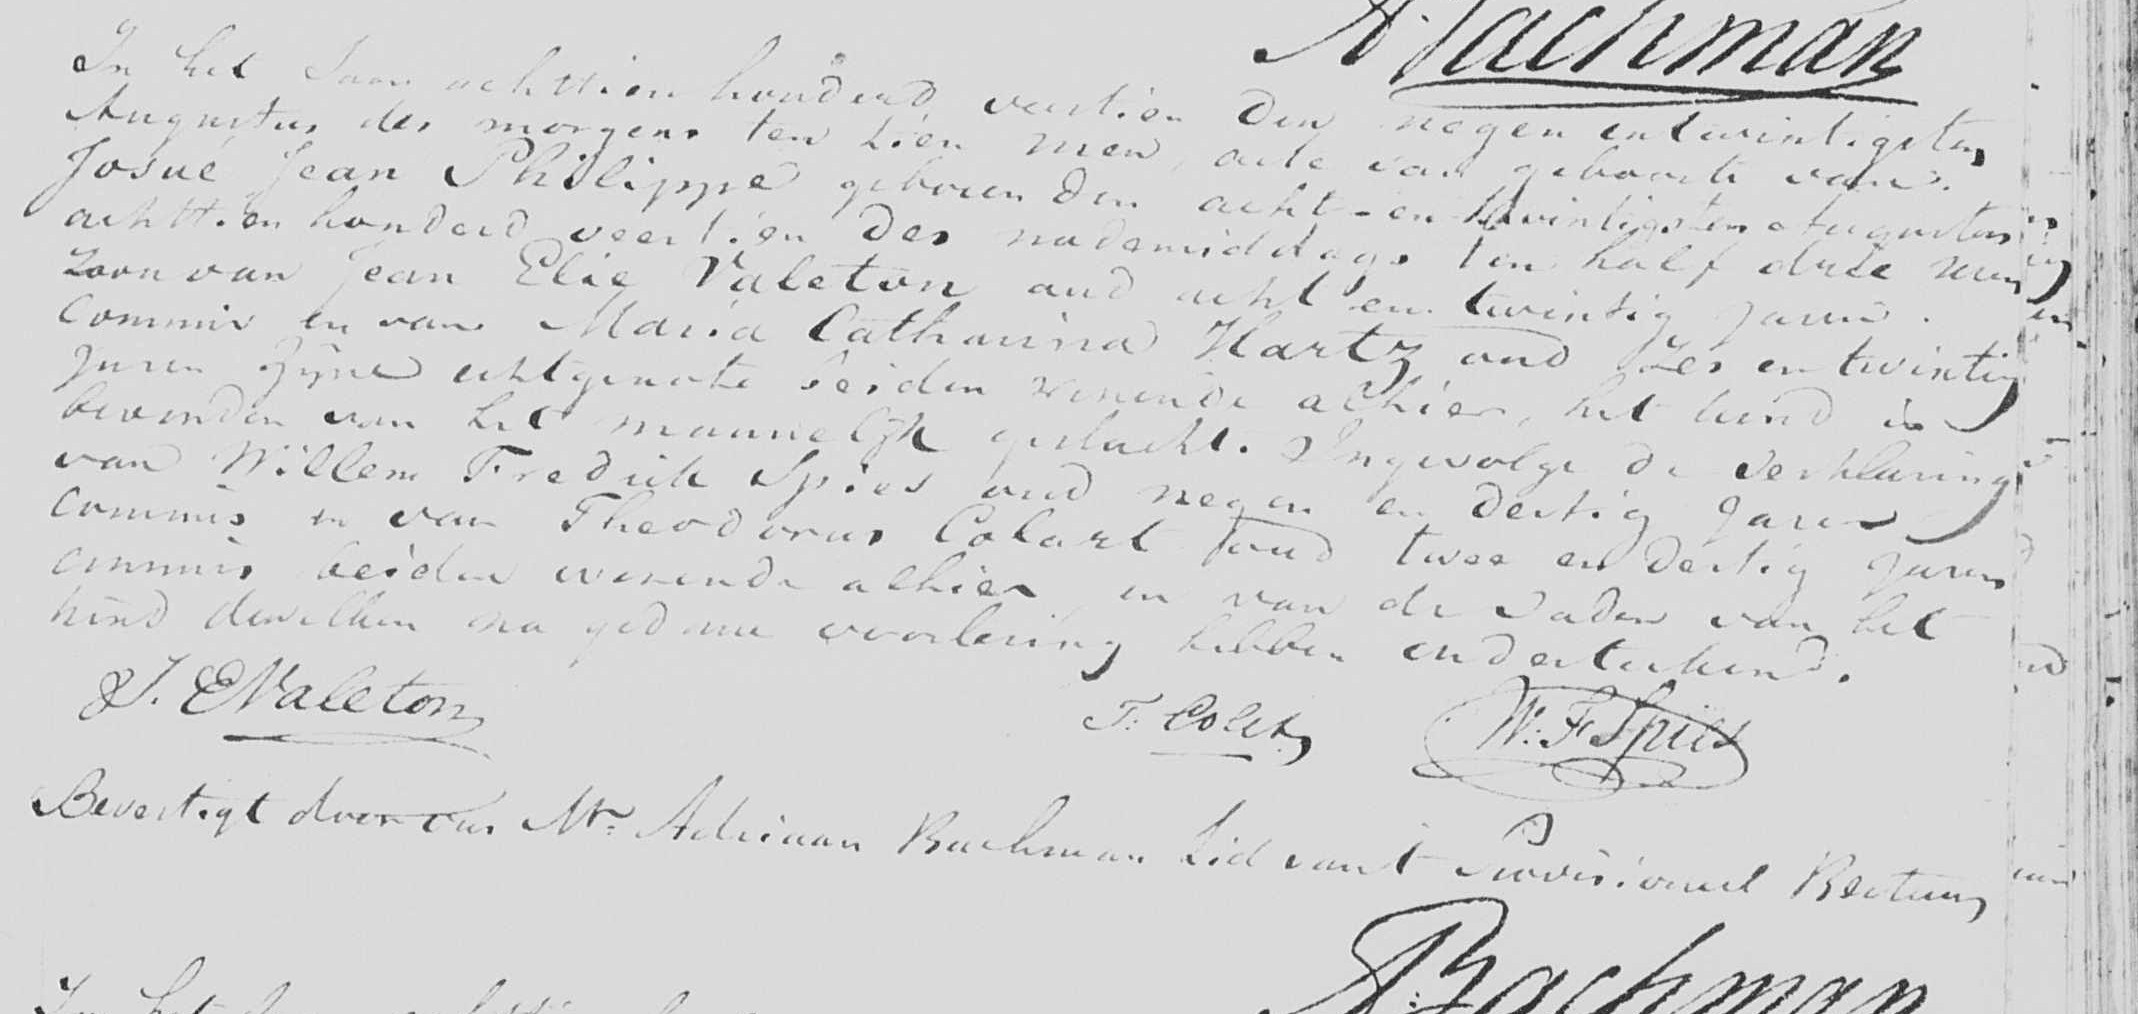 A. Bachman
In het Jaar achttien honderd veertien den negen en twintigsten
Augustus des morgens ten tien uren, acte van geboorte van.
Josué Jean Philippe geboren den acht-en-twintigsten Augustus
achttien honderd veertien des nademiddags ten half drie uren
Zoon van Jean Elie Valeton oud acht en twintig Jaren.
Commis en van Maria Catharina Hartz oud Zes en twintig
Jaren Zijne echtgenote beiden wonende alhier, het kind is
bevonden van het mannelijk geslacht. Ingevolge de verklaring
van Willem Fredrik Spies oud negen en dertig Jaren
Commis en van Theodorus Colart oud twee en dertig Jaren
Commis beiden wonende alhier en van de vader van het
kind dewelken na gedane voorlezing hebben ondertekend.
J. E Valeton T. Colart W. F Spies
Bevestigt door ons Mr. Adriaan Bachman Lid van't Provisioneel Bestuur
A: Bachman
In het Jaar